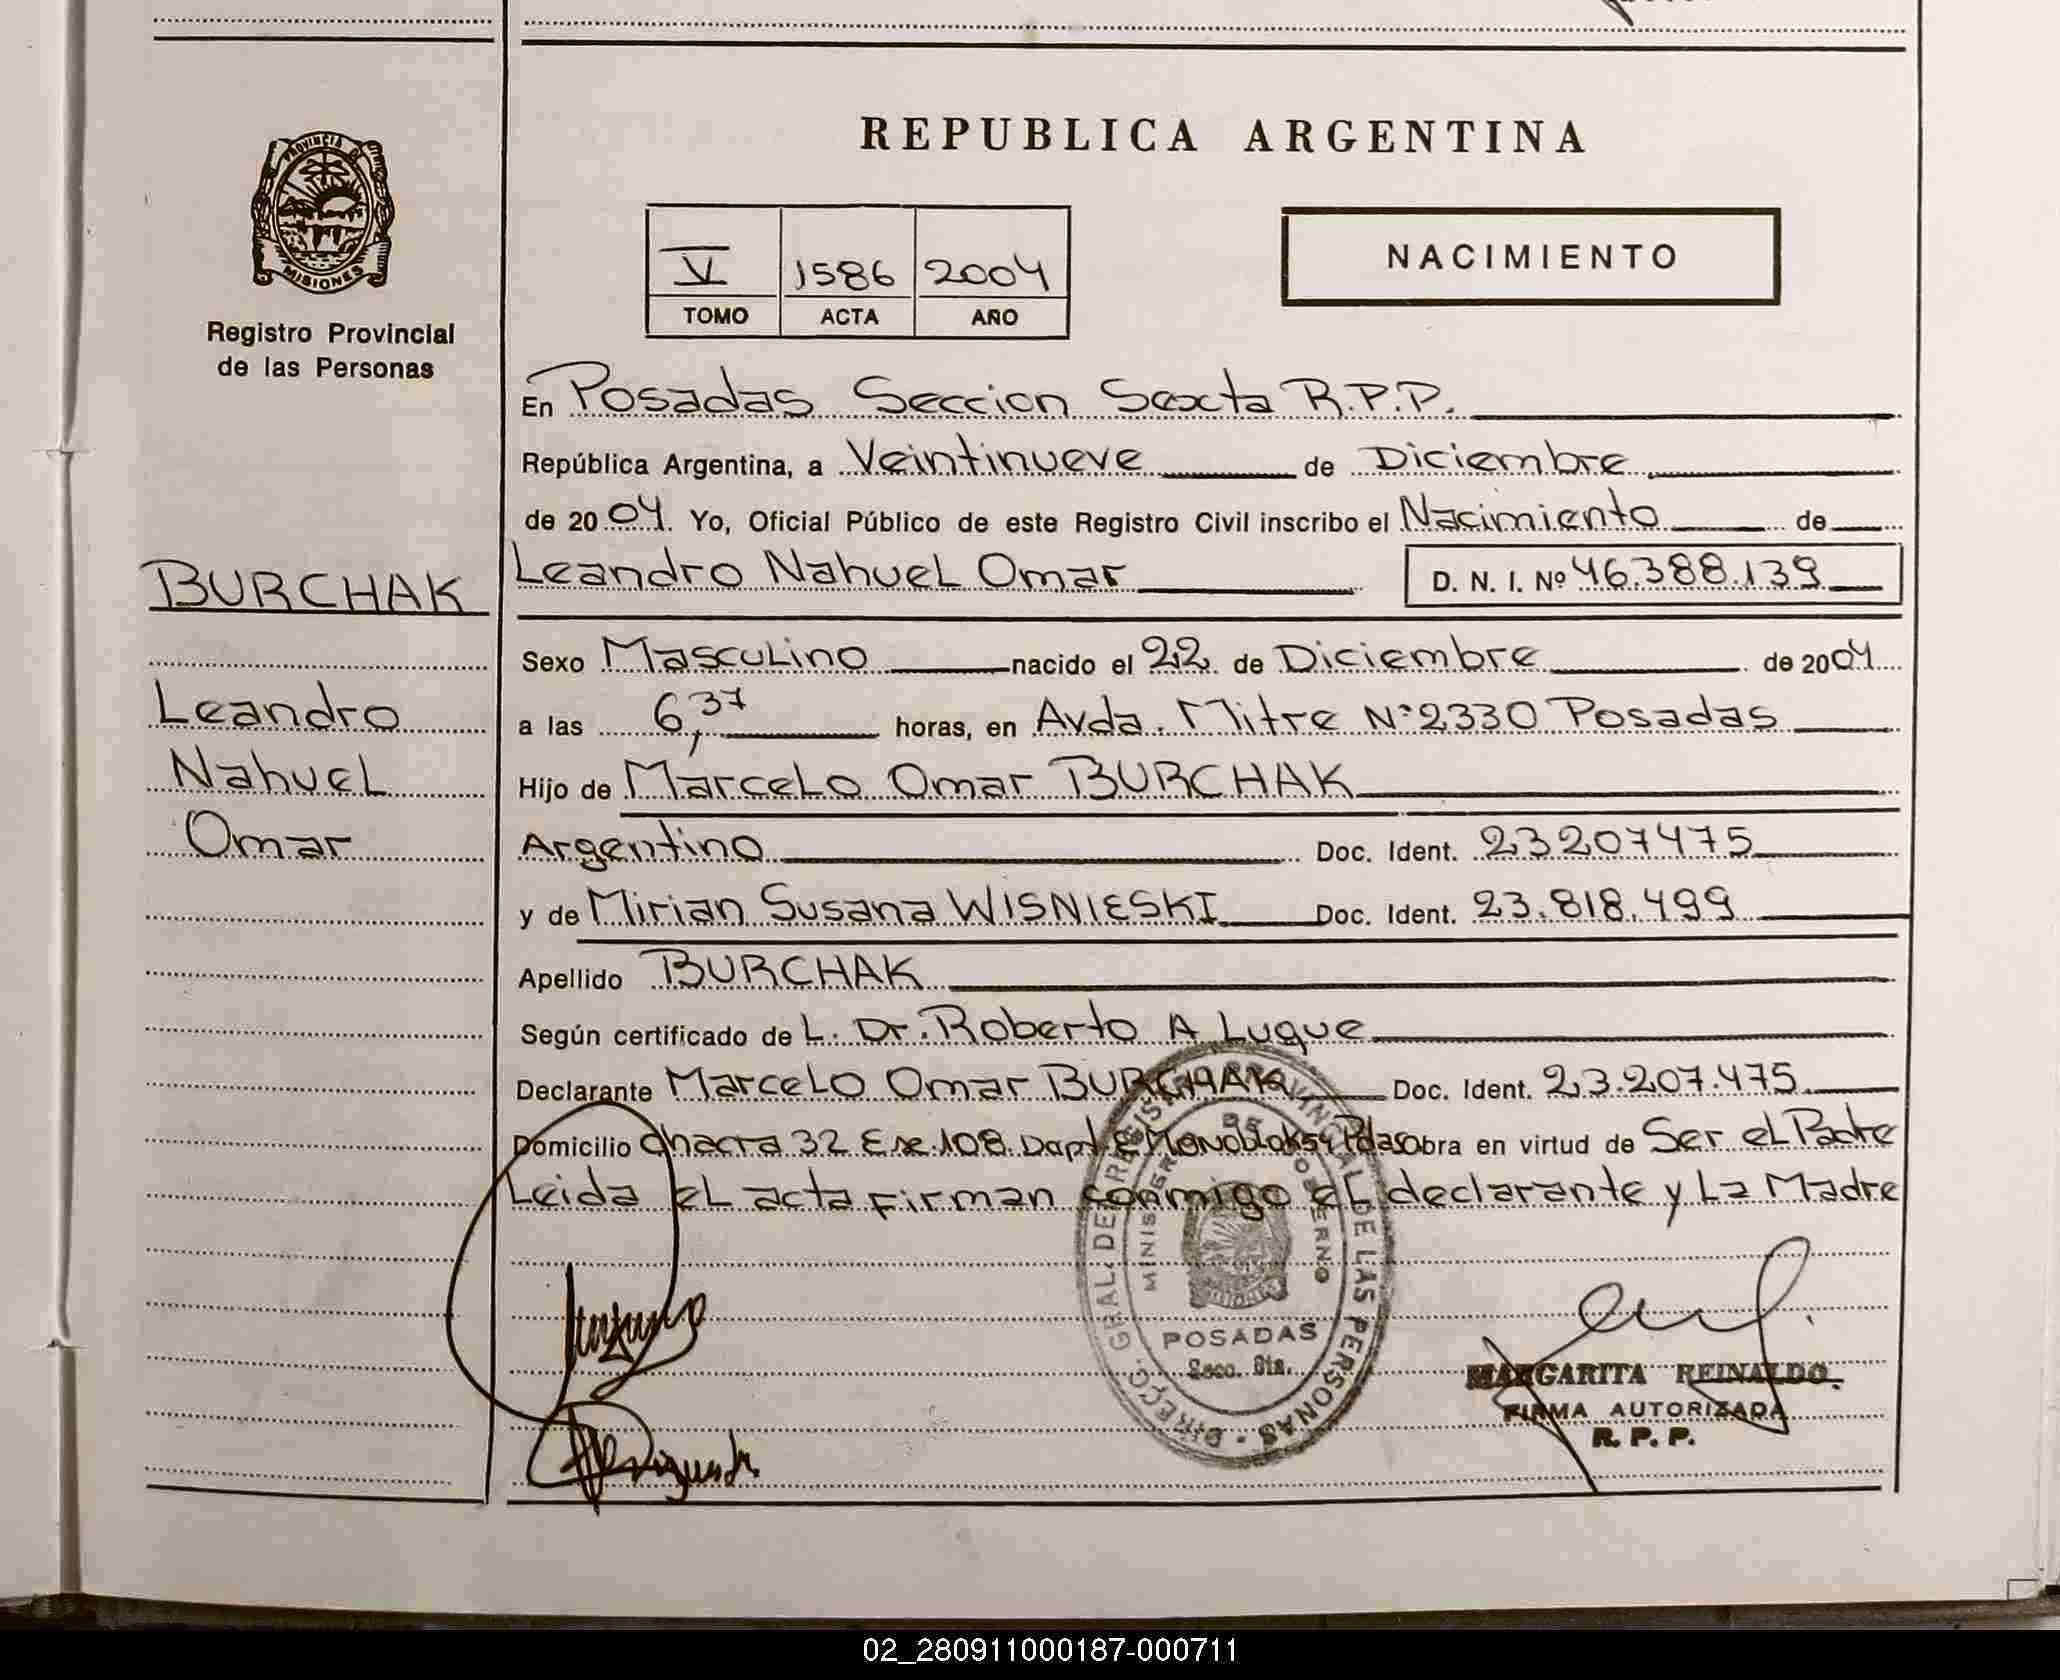 REPUBLICA ARGENTINA
PROVINCIA DE
MISIONES
Registro Provincial
de las Personas
V 1586 2004
TOMO ACTA AÑO
NACIMIENTO
En Posadas Seccion Sexta R.P.P.
República Argentina, a Veintinueve de Diciembre
de 2004. Yo, Oficial Público de este Registro Civil inscribo el Nacimiento de
BURCHAK
Leandro Nahuel Omar D. N. I. Nº 46.388.139
Sexo Masculino nacido el 22 de Diciembre de 2004
Leandro
a las 6,37 horas, en Avda. Mitre N° 2330 Posadas
Nahuel
Hijo de Marcelo Omar BURCHAK
Omar
Argentino Doc. Ident. 23207475
y de Mirian Susana WISNIESKI Doc. Ident. 23.818.499
Apellido BURCHAK
Según certificado de L. Dr. Roberto A Luque
Declarante Marcelo Omar BURCHAK Doc. Ident. 23.207.475
Domicilio chacra 32 Esc. 108 Dapt E Monoblok 54 Pdas obra en virtud de Ser el Padre
Leida el acta firman conmigo el declarante y La Madre
DIRECC. GRAL. DE REGISTRO PROVINCIAL DE LAS PERSONAS
MINISTERIO DE GOBIERNO
MISIONES
POSADAS
Secc. 6ta.
MARGARITA REINALDO
FIRMA AUTORIZADA
R. P. P.
02_280911000187-000711